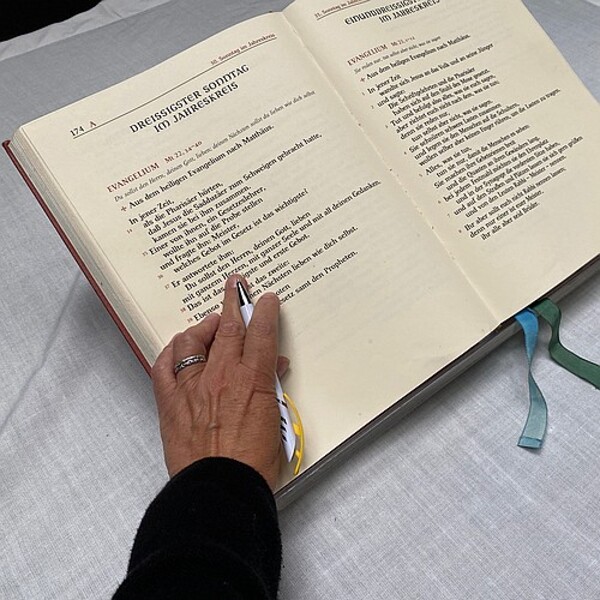 30. Sonntag im Jahreskreis
174 A
DREISSIGSTER SONNTAG
IM JAHRESKREIS
EVANGELIUM Mt 22, 34–40
Du sollst den Herrn, deinen Gott, lieben; deinen Nächsten sollst du lieben wie dich selbst
+ Aus dem heiligen Evangelium nach Matthäus.
In jener Zeit,
als die Pharisäer hörten,
daß Jesus die Sadduzäer zum Schweigen gebracht hatte,
kamen sie bei ihm zusammen.
Einer von ihnen, ein Gesetzeslehrer,
wollte ihn auf die Probe stellen
und fragte ihn: Meister,
welches Gebot im Gesetz ist das wichtigste?
Er antwortete ihm:
Du sollst den Herrn, deinen Gott, lieben
mit ganzem Herzen, mit ganzer Seele und mit all deinen Gedanken.
Das ist das und erste Gebot.
Ebenso ist das zweite:
Nächsten lieben wie dich selbst.
samt den Propheten.
31. Sonntag im Jahreskreis
IM JAHRESKREIS
EVANGELIUM
+ Aus dem heiligen Evangelium nach Matthäus.
In jener Zeit
wandte sich Jesus an das Volk und an seine Jünger
und sagte:
Die Schriftgelehrten und die Pharisäer
haben sich auf den Stuhl des Mose gesetzt.
Tut und befolgt also alles, was sie euch sagen,
aber richtet euch nicht nach dem, was sie tun;
denn sie reden nur,
tun selbst aber nicht, was sie sagen.
Sie schnüren schwere Lasten zusammen
und legen sie den Menschen auf die Schultern,
wollen selber aber keinen Finger rühren, um die Lasten zu tragen.
Alles, was sie tun,
tun sie nur, damit die Menschen es sehen:
Sie machen ihre Gebetsriemen breit
und die Quasten an ihren Gewändern lang,
bei jedem Festmahl möchten sie den Ehrenplatz
und in der Synagoge die vordersten Sitze haben,
und auf den Straßen und Plätzen lassen sie sich gern grüßen
und von den Leuten Rabbi – Meister – nennen.
Ihr aber sollt euch nicht Rabbi nennen lassen;
denn nur einer ist euer Meister,
ihr alle aber seid Brüder.